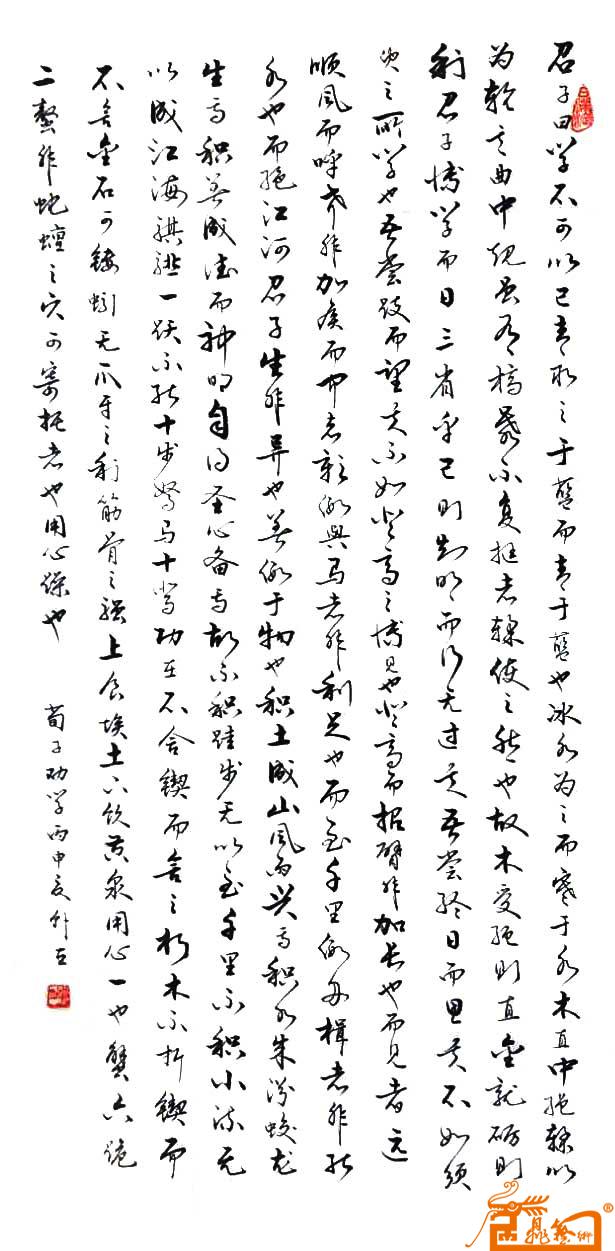 君子曰学不可以已青取之于蓝而青于蓝也冰水为之而寒于水木直中绳輮以
为轮其曲中规虽有槁暴不复挺者輮使之然也故木受绳则直金就砺则
利君子博学而日三省乎己则知明而行无过矣吾尝终日而思矣不如须
臾之所学也吾尝跂而望矣不如登高之博见也登高而招臂非加长也而见者远
顺风而呼声非加疾而闻者彰假舆马者非利足也而至千里假舟楫者非能
水也而绝江河君子生非异也善假于物也积土成山风雨兴焉积水成渊蛟龙
生焉积善成德而神明自得圣心备焉故不积跬步无以至千里不积小流无
以成江海骐骥一跃不能十步驽马十驾功在不舍锲而舍之朽木不折锲而
不舍金石可镂蚓无爪牙之利筋骨之强上食埃土下饮黄泉用心一也蟹六跪
二螯非蛇蟺之穴可寄托者也用心躁也
荀子劝学丙申夏
鼎艺术